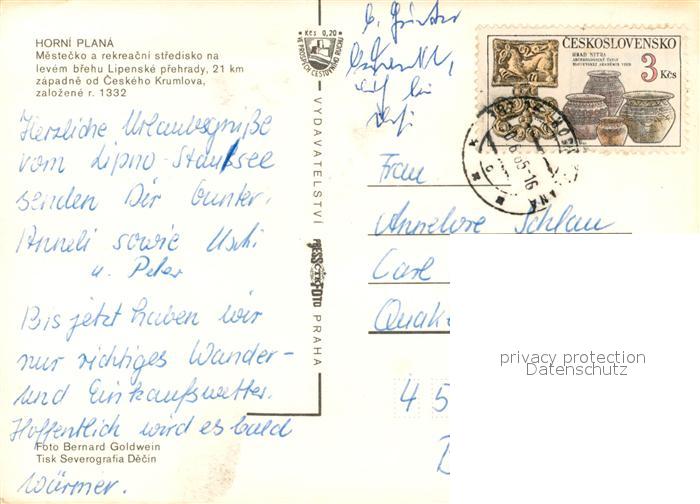 HORNÍ PLANÁ
Městečko a rekreační středisko na
levém břehu Lipenské přehrady, 21 km
západně od Českého Krumlova,
založené r. 1332
Herzliche Urlaubsgrüße
vom Lipno-Stausee
senden Dir Gunter,
Anneli sowie Uschi
u. Peter
Bis jetzt haben wir
nur richtiges Wander-
und Einkaufswetter.
Hoffentlich wird es bald
wärmer.
Foto Bernard Goldwein
Tisk Severografia Děčín
Kčs 0,20
VE PROSPĚCH CESTOVNÍHO RUCHU
VYDAVATELSTVÍ
PRESSFOTO
PRAHA
ČESKOSLOVENSKO
HRAD NITRA
3 Kčs
-16
Frau
Annelore Schlau
Carl
Quak
45
D
privacy protection
Datenschutz